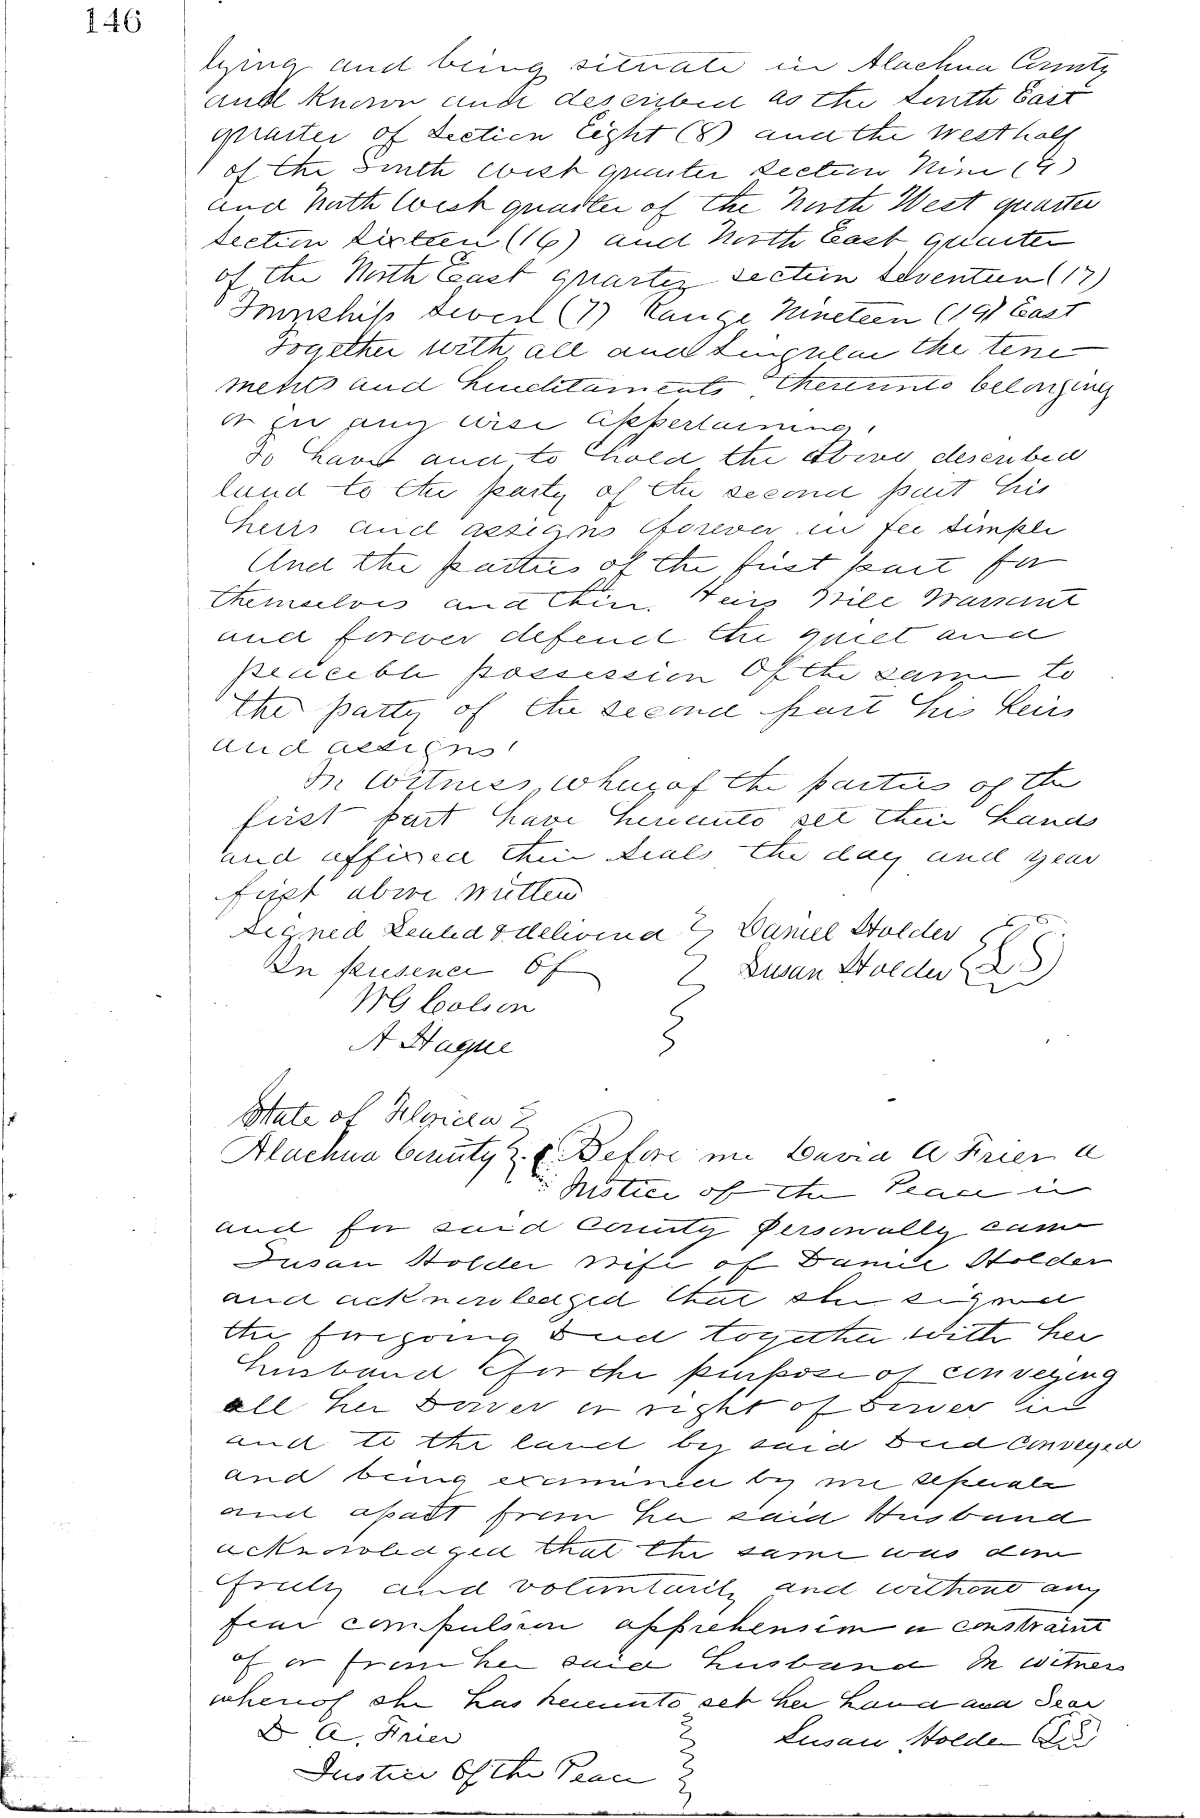 146
lying and being situate in Alachua County
and known and described as the South East
quarter of Section Eight (8) and the west half
of the South west quarter Section Nine (9)
and North West quarter of the North West quarter
Section Sixteen (16) and North East quarter
of the North East quarter section Seventeen (17)
Township Seven (7) Range Nineteen (19) East
Together with all and Singular the tene
ments and hereditaments thereunto belonging
or in any wise appertaining.
To have and to hold the above described
land to the party of the second part his
heirs and assigns forever in fee simple
And the parties of the first part for
themselves and their Heirs Will Warrant
and forever defend the quiet and
peacible possession Of the same to
the party of the second part his heirs
and assigns
In Witness whereof the parties of the
first part have hereunto set their hands
and affixed their Seals the day and year
first above written
Signed Sealed & delivered Daniel Holder
In presence Of Susan Holder (LS)
WG Colson
A Hague
State of Florida
Alachua County Before me David A Frier a
Justice of the Peace in
and for said County Personally came
Susan Holder wife of Daniel Holder
and acknowledged that she signed
the foregoing Deed together with her
husband for the purpose of conveying
all her Dower or right of Dower in
and to the land by said Deed Conveyed
and being examined by me seperate
and apart from her said Husband
acknowledged that the same was done
freely and voluntarily and without any
fear compulsion apprehension or constraint
of or from her said husband In witness
whereof she has hereunto set her hand and Seal
D A. Frier Susan Holder (LS)
Justice Of the Peace